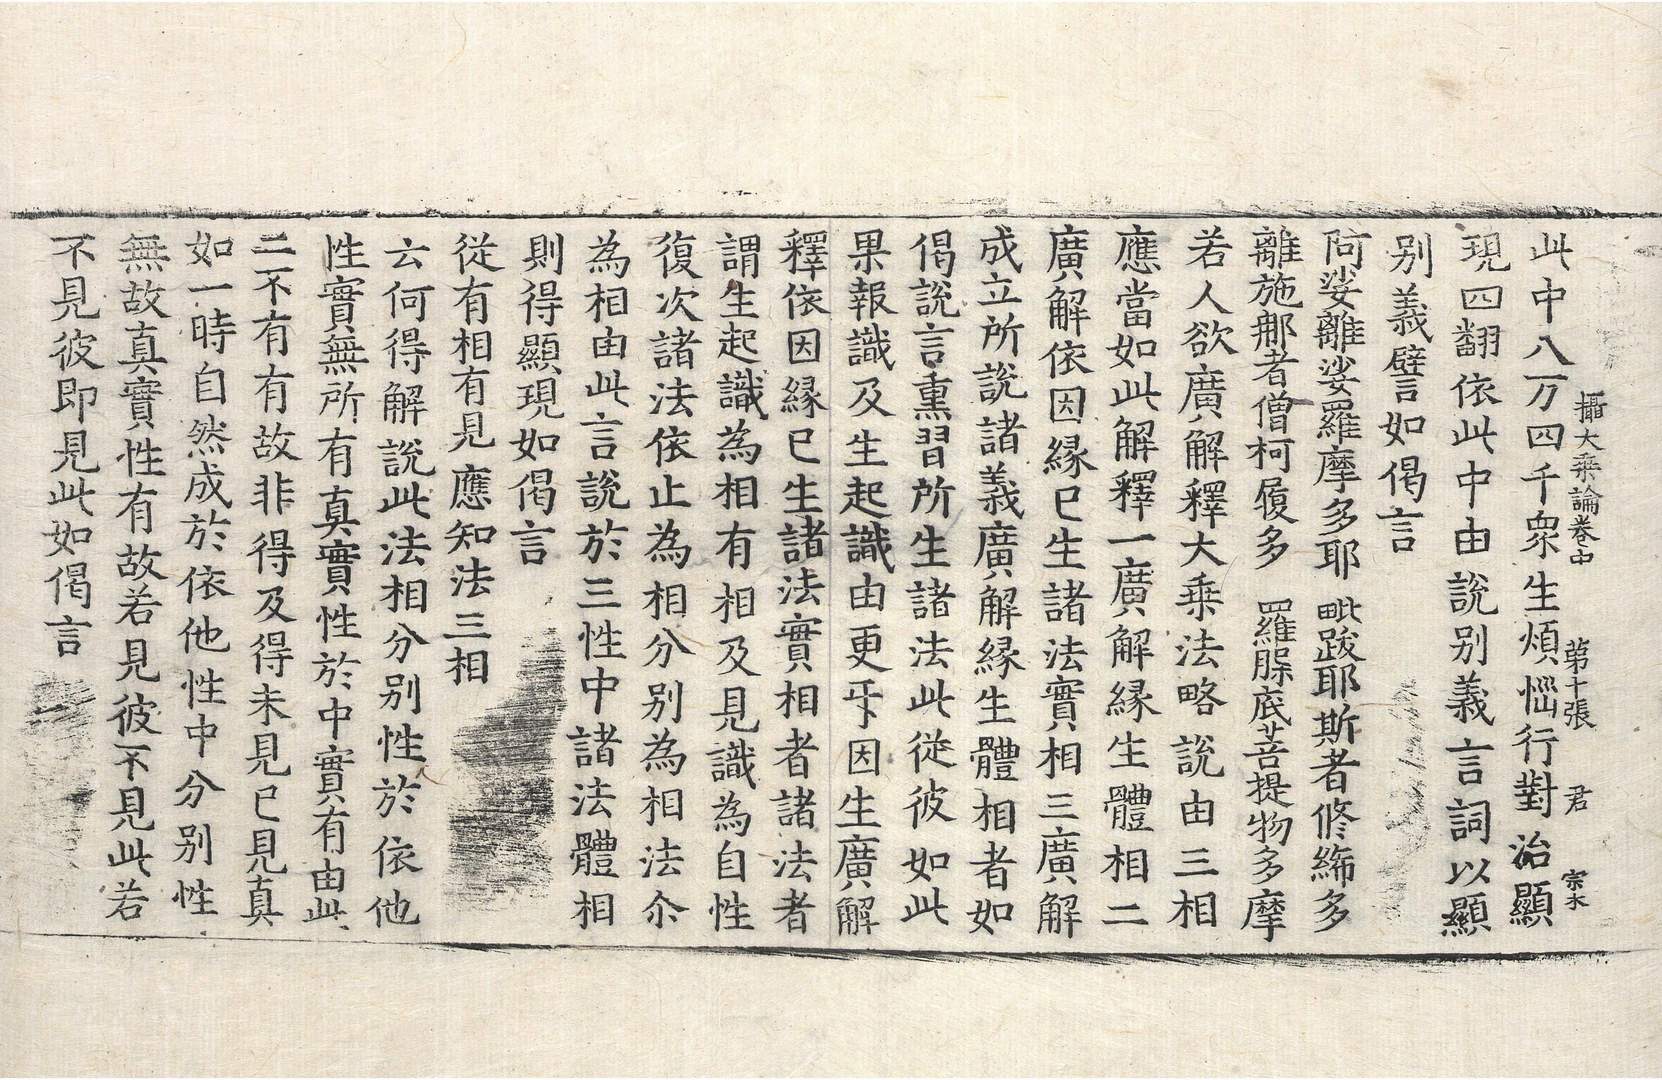 攝大乘論卷中 第十張 君 宗木
此中八万四千衆生煩惱行對治顯
現四翻依此中由說別義言詞以顯
別義譬如偈言
阿娑離娑羅摩多耶 毗跋耶斯者修絺多
離施那者僧柯履多 羅腂底菩提物多摩
若人欲廣解釋大乘法略說由三相
應當如此解釋一廣解緣生體相二
廣解依因緣已生諸法實相三廣解
成立所說諸義廣解緣生體相者如
偈說言熏習所生諸法此從彼如此
果報識及生起識由更互因生廣解
釋依因緣已生諸法實相者諸法者
謂生起識為相有相及見識為自性
復次諸法依止為相分別為相法尒
為相由此言說於三性中諸法體相
則得顯現如偈言
從有相有見應知法三相
云何得解說此法相分別性於依他
性實無所有真實性於中實有由此
二不有有故非得及得未見已見真
如一時自然成於依他性中分別性
無故真實性有故若見彼不見此若
不見彼即見此如偈言